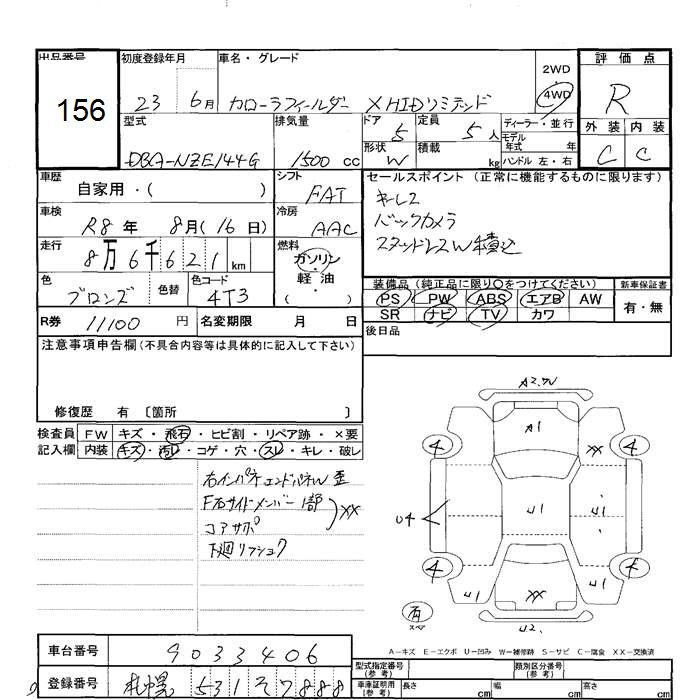 出品番号 初度登録年月 車名・グレード 2WD 評価点
156 23 6月 カローラフィールダー XHIDリミテッド 4WD R
型式 排気量 ドア 定員 ディーラー・並行 外装 内装
DBA-NZE144G 1500 cc 5 5人 モデル年式 年 C C
形状 W 積載 kg ハンドル 左・右
車歴 シフト セールスポイント (正常に機能するものに限ります)
自家用・( ) FAT キーレス
車検 冷房 バックカメラ
R8年 8月(16日) AAC スタッドレスW積込
走行 燃料
8万6千621km ガソリン・軽油・( )
色 色替 色コード 装備品 (純正品に限り○をつけてください) 新車保証書
ブロンズ 4T3 PS PW ABS エアB AW 有・無
R券 11100円 名変期限 月 日 SR ナビ TV カワ
注意事項申告欄(不具合内容等は具体的に記入して下さい) 後日品
修復歴 有 〔箇所 〕
検査員 FW キズ・飛石・ヒビ割・リペア跡・×要
記入欄 内装 キズ・汚レ・コゲ・穴・スレ・キレ・破レ
右インパネエンドパネW 歪
F右サイドメンバー1部 XX
コアサポ
下廻リフシュク
A1
XX
4 4
U4 U1 U1
4 4
U1 XX U1
有 スペア U2.
A-キズ E-エクボ U-凹み W-補修跡 S-サビ C-腐食 XX-交換済
車台番号 9033406 型式指定番号(参考) 類別区分番号(参考)
登録番号 札幌 531 そ 7888 車庫証明用(参考) 長さ cm 幅 cm 高さ cm